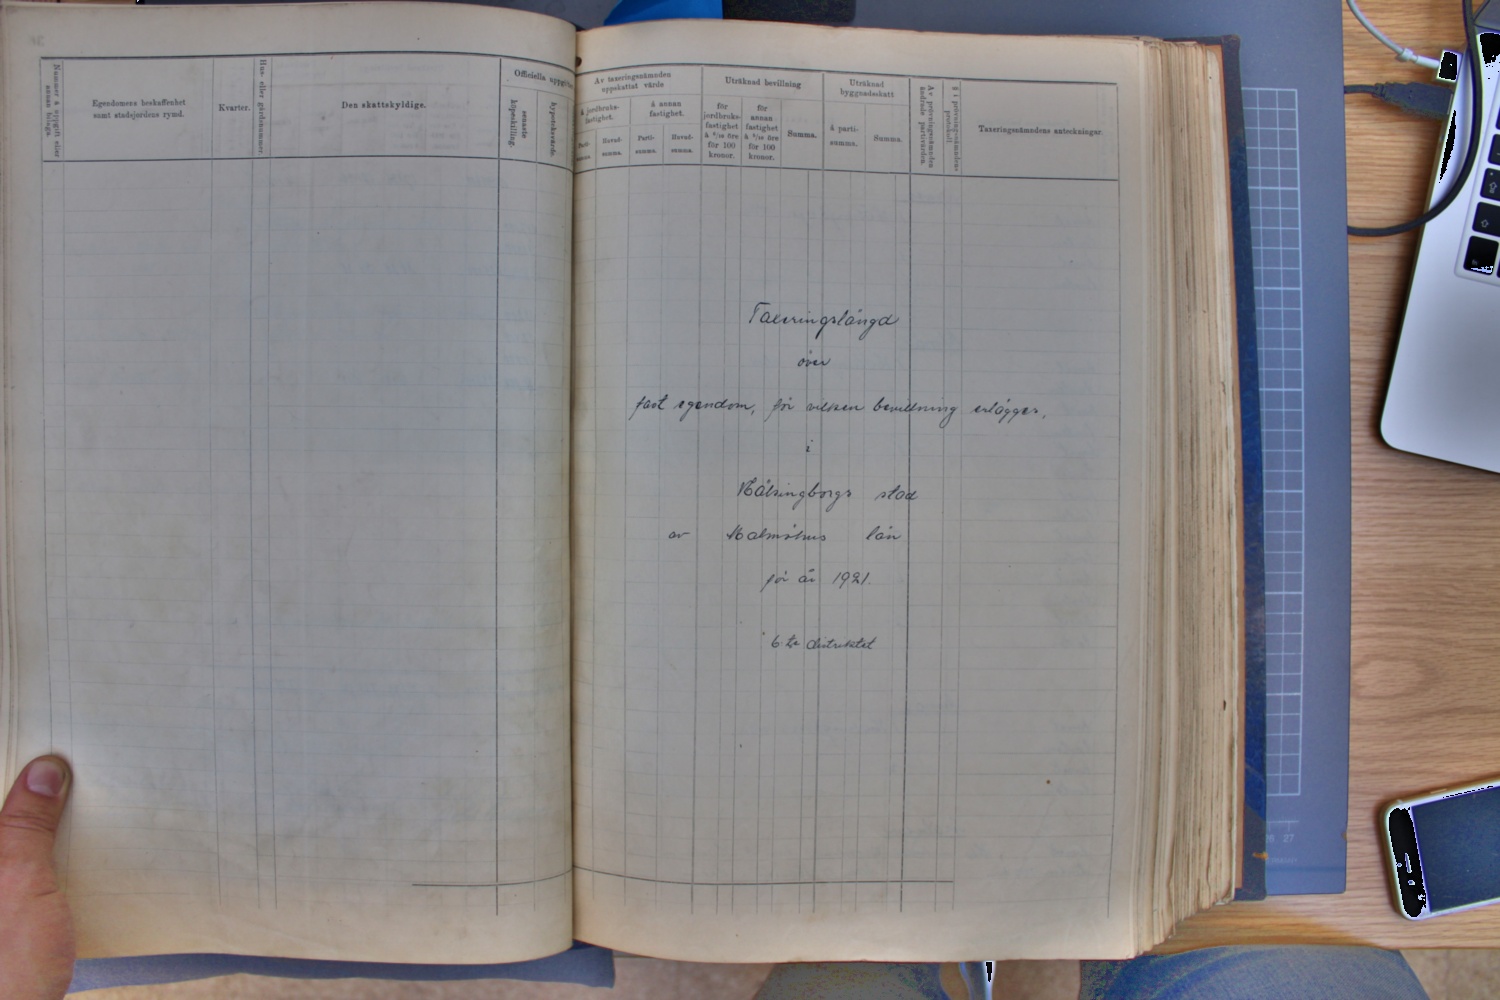 Nummer å uppgift eller annan bilaga.
Egendomens beskaffenhet samt stadsjordens rymd.
Kvarter.
Hus- eller gårdsnummer.
Den skattskyldige.
Officiella uppgifter
senaste köpeskilling.
hypoteksvärde.
Av taxeringsnämnden uppskattat värde
å jordbruksfastighet.
å annan fastighet.
Parti-summa.
Huvud-summa.
Parti-summa.
Huvud-summa.
Uträknad bevillning
för jordbruksfastighet à 6/10 öre för 100 kronor.
för annan fastighet à 5/10 öre för 100 kronor.
Summa.
Uträknad byggnadsskatt
å parti-summa.
Summa.
Av prövningsnämnden ändrade partivärden.
§ i prövningsnämndens protokoll
Taxeringsnämndens anteckningar.
Taxeringslängd
över
fast egendom, för vilken bevillning erlägges,
i
Hälsingborgs stad
av Malmöhus län
för år 1921.
6:te distriktet